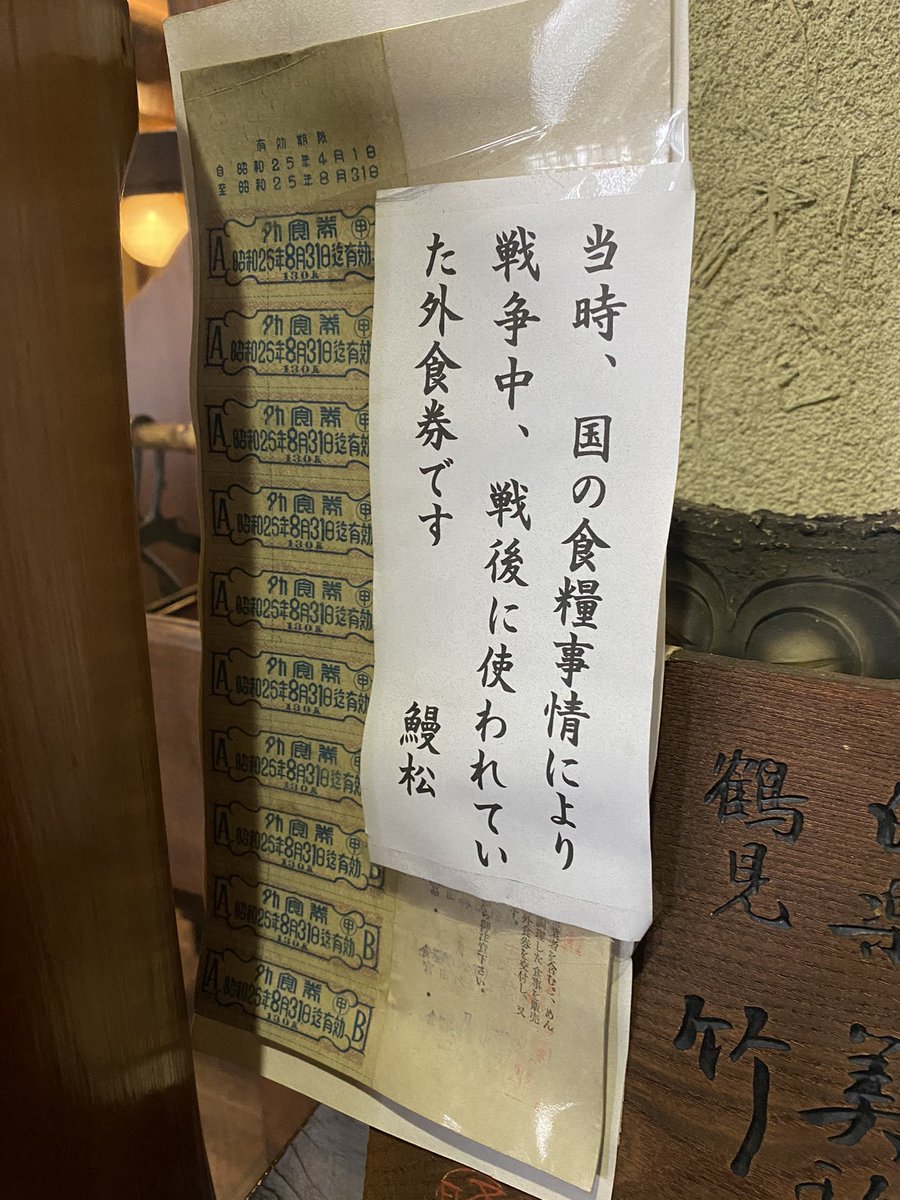 当時、国の食糧事情により
戦争中、戦後に使われてい
た外食券です
鰻松
有効期限
自 昭和25年4月1日
至 昭和25年8月31日
外食券 甲
A 昭和25年8月31日迄有効
130瓦
外食券 甲
A 昭和25年8月31日迄有効
130瓦
外食券 甲
A 昭和25年8月31日迄有効
130瓦
外食券 甲
A 昭和25年8月31日迄有効
130瓦
外食券 甲
A 昭和25年8月31日迄有効
130瓦
外食券 甲
A 昭和25年8月31日迄有効
130瓦
外食券 甲
A 昭和25年8月31日迄有効
130瓦
外食券 甲
A 昭和25年8月31日迄有効 B
130瓦
外食券 甲
A 昭和25年8月31日迄有効 B
130瓦
外食券 甲
A 昭和25年8月31日迄有効 B
130瓦
業者を含む。)、めん
調理した食事を販売
外食券を交付し、又
す。
から御注意下さい。
楽 美
鶴見 竹